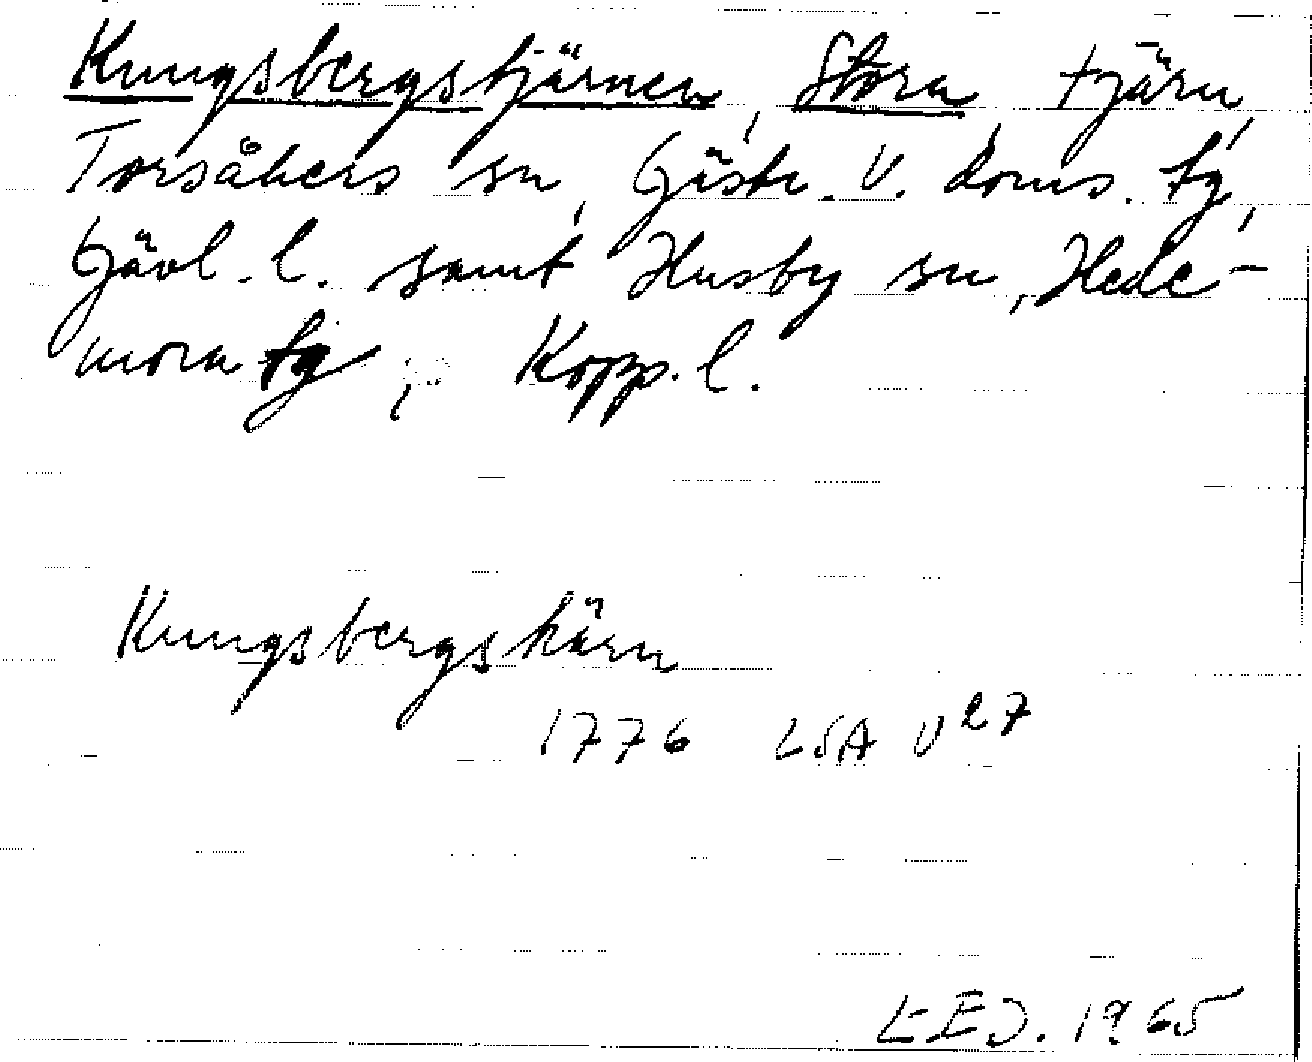 Kungsbergstjärnen, Stora, tjärn,
Torsåkers sn, Gästr. V. doms. tg,
Gävl. l. samt Husby sn, Hede-
mora tg, Kopp. l.
Kungsbergskärn
1776 LSA V27
LEJ. 1965